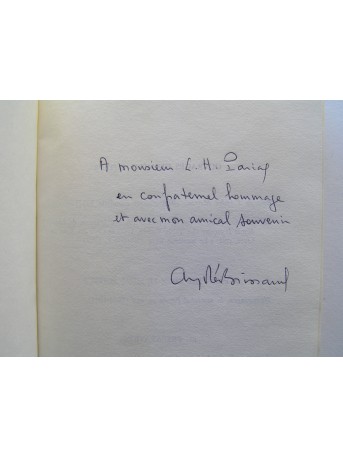 A monsieur L. H. Parias
en confraternel hommage
et avec mon amical souvenir
André Brissaud